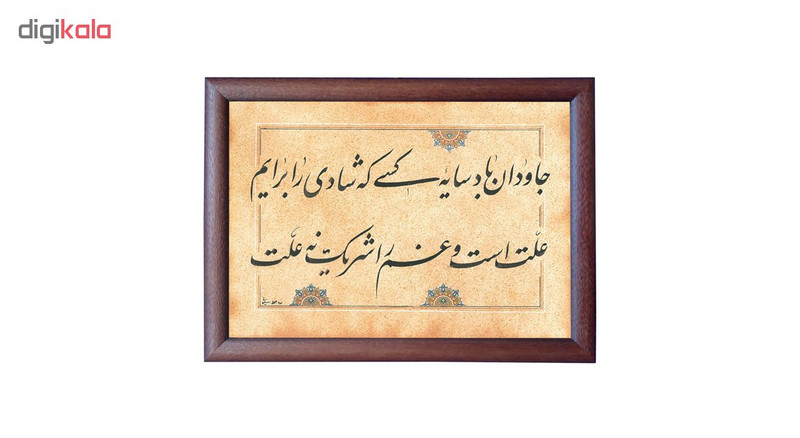 digikala
جاودان باد سایه کسے که شادی را برایم
علّت است و غم را شریک نه علّت